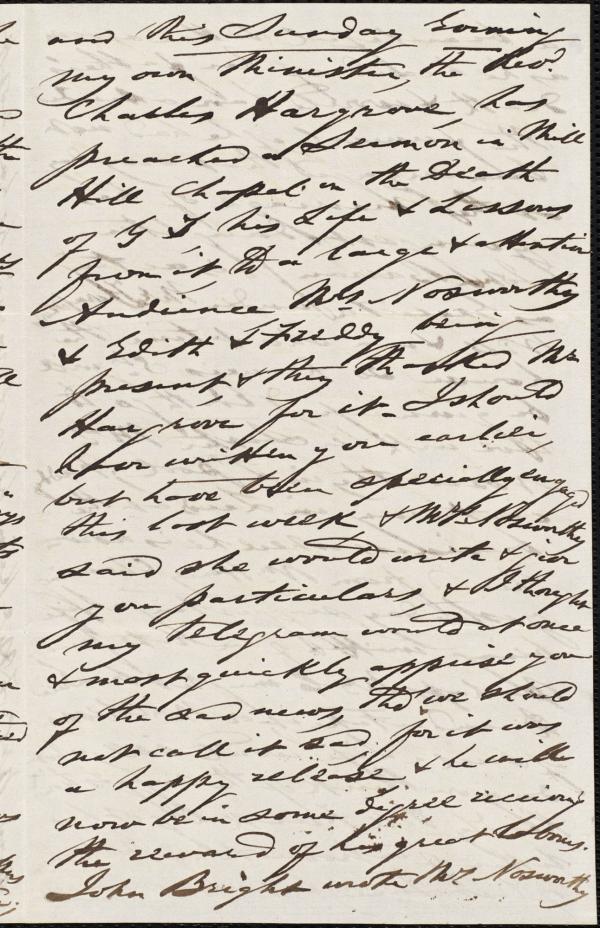 and this Sunday Evening
my own Minister, the Revd.
Charles Hargrove, has
preached a Sermon in Mill
Hill Chapel on the Death
of G T, his Life & Lessons
from it, to a large & attentive
Audience, Mrs Nosworthy
& Edith & Freddy being
present & they thanked Mr
Hargrove for it - I should
have written you earlier,
but have been specially engaged
this last week & Mrs. Nosworthy
said she would write & give
you particulars, & I thought
my Telegram would at once
& most quickly apprise you
of the sad news, tho' we should
not call it sad, for it was
a happy release & he will
now be in some degree receiving
the reward of his great labours.
John Bright wrote Mrs Nosworthy